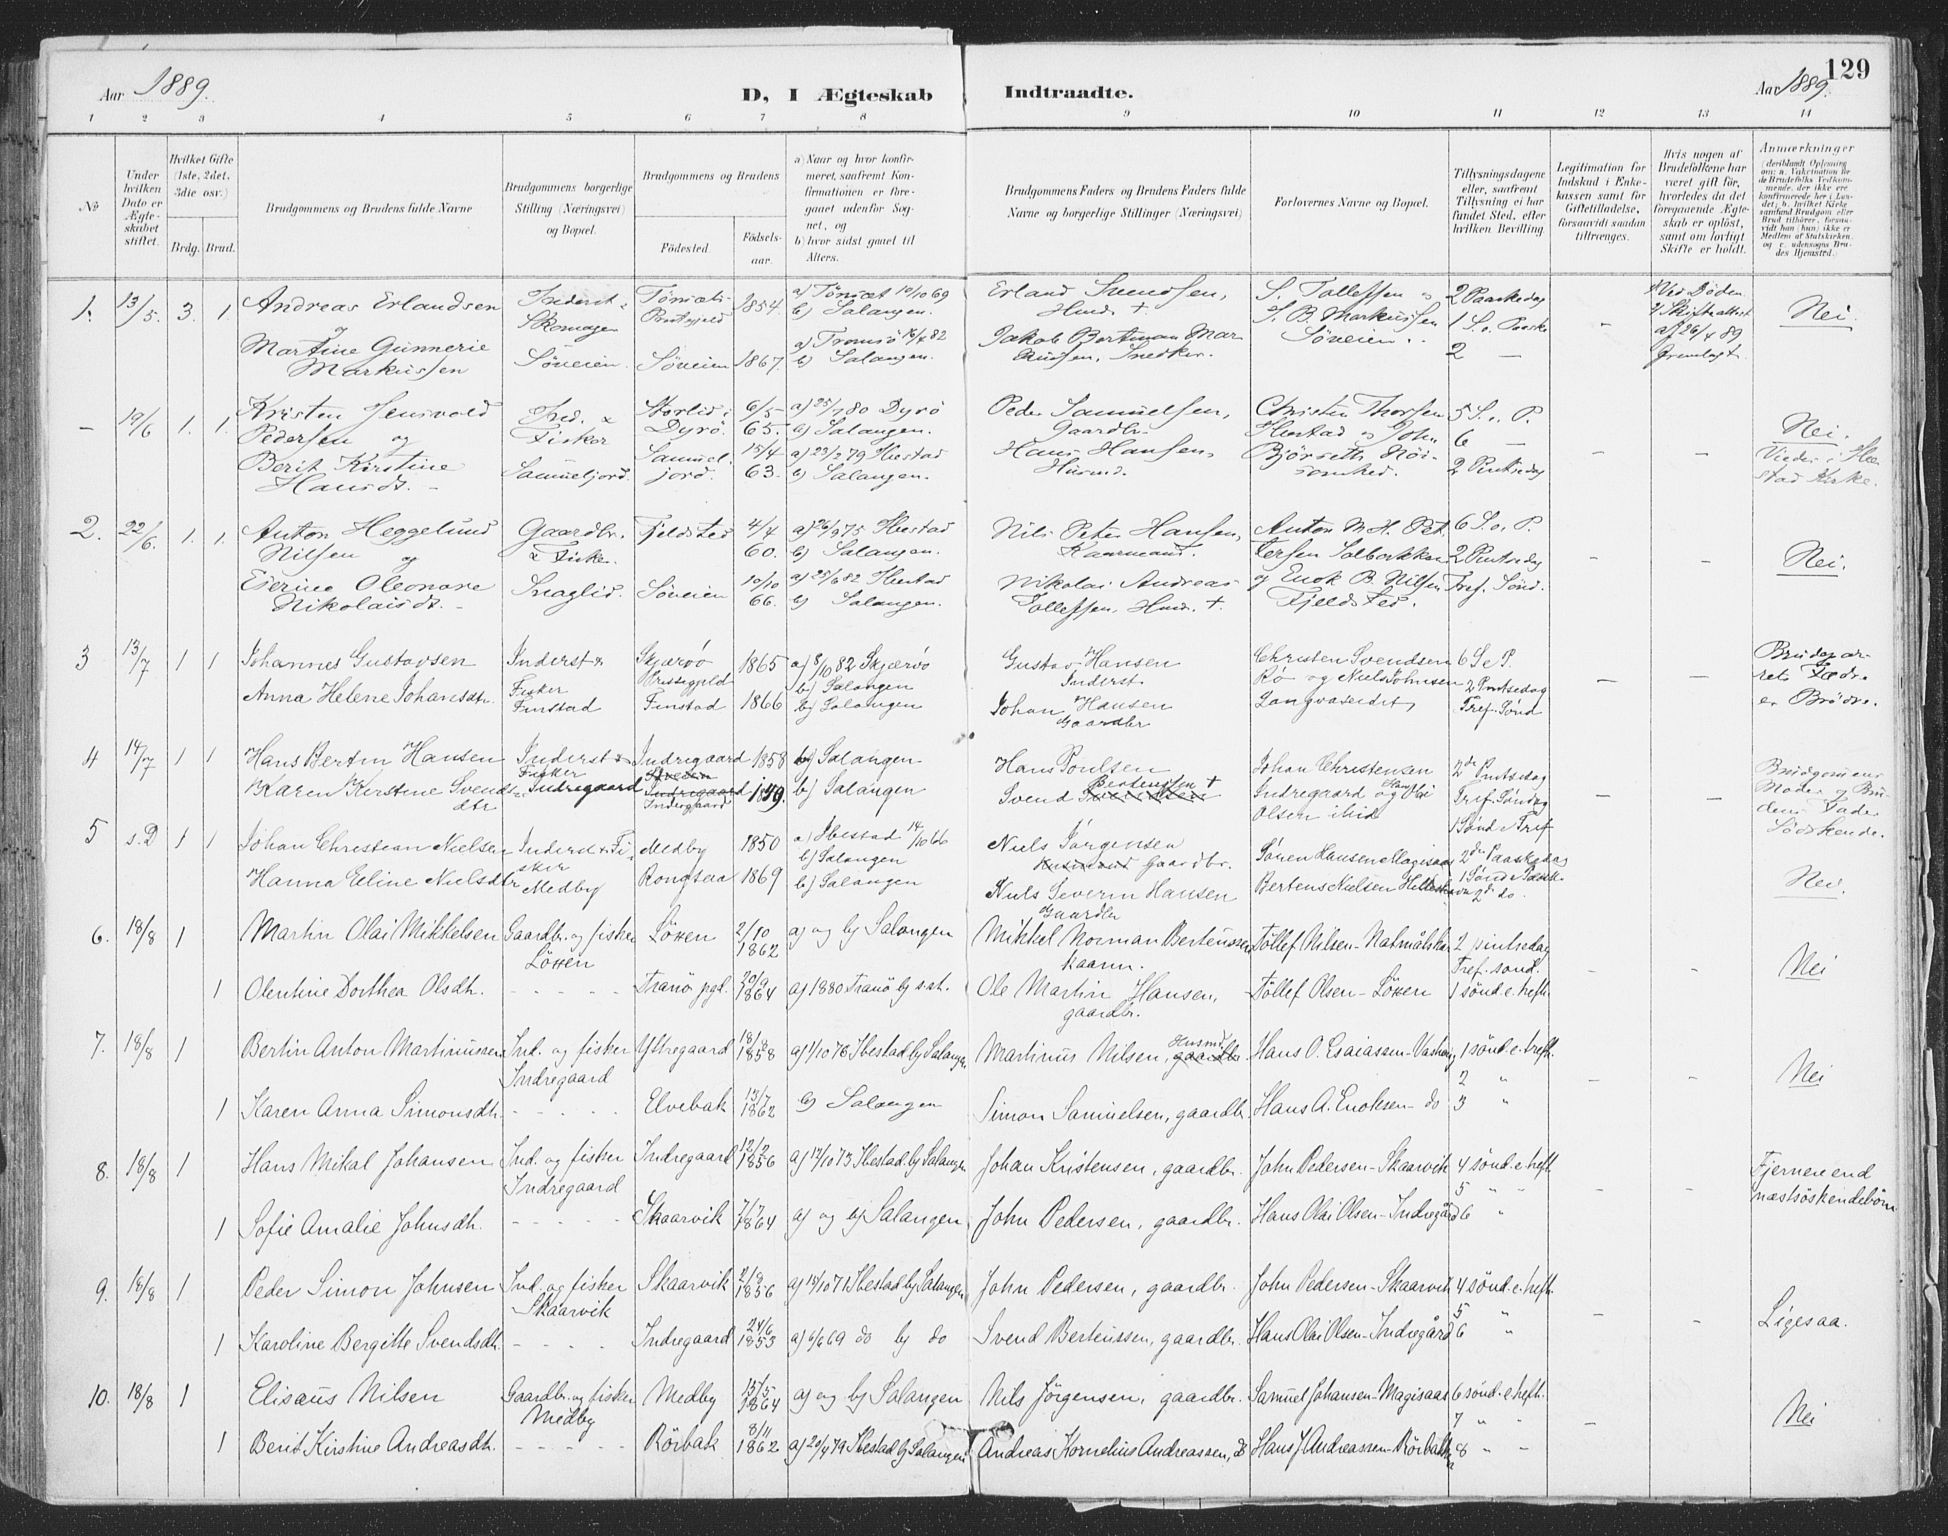 Aar 1889.
D, I Ægteskab Indtraadte.
Aar 1889.
129
1 2 3 4 5 6 7 8 9 10 11 12 13 14
No
Under hvilken Dato er Ægteskabet stiftet.
Hvilket Gifte (1ste, 2det, 3die osv.)
Brdg. Brud.
Brudgommens og Brudens fulde Navne
Brudgommens borgerlige Stilling (Næringsvei) og Bopæl.
Brudgommens og Brudens
Fødested.
Fødselsaar.
a) Naar og hvor konfirmeret, saafremt Konfirmationen er foregaaet udenfor Sognet, og
b) hvor sidst gaaet til Alters.
Brudgommens Faders og Brudens Faders fulde Navne og borgerlige Stillinger (Næringsvei)
Forlovernes Navne og Bopæl.
Tillysningsdagene eller, saafremt Tillysning ei har fundet Sted, efter hvilken Bevilling.
Legitimation for Indskud i Enkekassen samt det Giftetilladelse, forsaavidt saadan tiltrænges.
Hvis nogen af Brudefolkene har været gift før, hvorledes da det foregaaende Ægteskab er opløst, samt om lovligt Skifte er holdt.
Anmærkninger
1. 13/5. 3. 1 Andreas Erlandsen Inderst & Skomager 1854. a) Tönset 10/10 69 b) Salangen. Erland Svendsen, Husm. + S. Tollefsen og 2 Paaskedag Ved Døden Nei.
og Martine Gunnerie Markussen Søveien. Søveien 1867. a) Tromsö b) Salangen. Jakob Bertman Markussen, Snedker. S. B. Markussen Søveien. 1 S. e. Paaske 2 — af 26/4 89 fremlagt.
— 19/6 1. 1. Kristen Jensvold Pedersen og Ind. & Fisker Storlid i Dyrø. 6/5 65. a) 25/7 80 Dyrö b) Salangen. Peder Samuelsen, Gaardbr. Christen Thorsen Ibestad og John 5 S. e. P. 6 — Nei.
Berit Kirstine Hansdt. Samueljord. Samueljord. 15/4 63. a) 23/2 79 Ibestad b) Salangen. Hans Hansen, Husmd. 2 Pintsedag Viedes i Ibestad Kirke.
2. 22/6. 1. 1. Anton Heggelund Nilsen og Gaardbr. & Fisker Fjeldsted 4/4 60. a) 26/9 75 Ibestad b) Salangen. Nils Peter Hansen, Kaarmand. Anton M. H. Pettersen Solbakken 6 S. e. P. 2 Pintsedag Nei.
Ejerine Oleonare Nikolaisdt. Snaglid. Søveien 10/10 66. a) 25/6 82 Ibestad b) Salangen. Nikolai Andreas Tollefsen, Husm. + og Enok B. Nilsen Fjeldsted. Tref. Sönd.
3 13/7 1 1 Johannes Gustavsen Inderst & Fisker Finstad Skjærvö Præstegjeld 1865 a) 8/10 82 Skjærvö b) Salangen Gustav Hansen Inderst Christen Svendsen Rø og Niels Johnsen 6 S e P. 2 Pintsedag Brudeparrets Fædre er Brödre.
Anna Helene Johansdtr. Finstad 1866 b) Salangen Johan Hansen Gaardbr Langvaseidet, Tref. Sönd
4 14/7 1 1 Hans Bertin Hansen Inderst & Fisker Indregaard Indregaard 1858 b) Salangen Hans Poulsen Johan Christensen 2den Pintsedag Brudgommens Moder og Brudens Fader Södskende.
Karen Kirstine Svendsdtr Indregaard 1859. b) Salangen Svend Berteussen + Indregaard og Hans Olai Olsen ibid Tref. Söndag 1 Sönd e Tref
5 s.D 1 1 Johan Christian Nielsen Inderst & Fisker Medby Medby 1850 a) Ibestad 14/10 66 b) Salangen Niels Jörgensen Gaardbr. Sören Hansen Magisaas 2den Paaskedag Nei.
Hanna Eeline Nielsdtr Rongsaa 1869 b) Salangen Niels Severin Hansen Gaardbr 1 Sönd e Paask. 2d do.
6. 18/8 1 Martin Olai Mikkelsen Gaardbr. og fisker Löxen Löxen 2/10 1862 a) og b) Salangen Mikkel Norman Berteussen kaarm. Töllef Nilsen 2 pintsedag Tref. sond. Nei
1 Olentine Dorthea Olsdtr. — — — Tranö pgl. 20/9 1864 a) 1880 Tranö b) s. st. Ole Martin Hansen, gaardbr. Töllef Olsen - Löxen 1 sönd. e. trefh.
7. 18/8 1 Bertin Anton Martinussen Ind. og fisker Indregaard Ystregaard 18/8 1858 a) 1/10 76 Ibestad b) Salangen Martinus Nilsen, Husmd Hans O. Esaiassen 1 sönd. e. trefh. 2 " Nei
1 Karen Anna Simonsdtr. — — — Elvebak 13/7 1862 b) Salangen Simon Samuelsen, gaardbr. Hans A. Enoksen - do 3 "
8. 18/8 1 Hans Mikal Johansen Ind. og fisker Indregaard Indregaard 12/2 1856 a) 12/10 73 Ibestad. b) Salangen Johan Kristensen, gaardbr. John Pedersen - Skaarvik 4 sönd. e. trefh. 5 " Fjernere end næstsöskendebörn
1 Sofie Amalie Johnsdtr. — — — Skaarvik 7/7 1864 a) og b) Salangen John Pedersen, gaardbr. Hans Olai Olsen - Indregård 6 "
9. 18/8 1 Peder Simon Johnsen Ind. og fisker Skaarvik Skaarvik 2/9 1856 a) 15/10 71 Ibestad b) Salangen John Pedersen, gaardbr. John Pedersen - Skaarvik 4 sönd. e. trefh. 5 Ligesaa.
1 Karoline Bergitte Svendsdtr. — — — Indregaard 24/6 1853 a) 6/6 69 do b) do Svend Berteussen, gaardbr. Hans Olai Olsen - Indregård 6 "
10. 18/8 1 Elisæus Nilsen Gaardbr. og fisker Medby Medby 15/5 1864 a) og b) Salangen Nils Jörgensen, gaardbr. Samuel Johansen - Magisaas 6 sönd. e. trefh. 7 " Nei
1 Berit Kirstine Andreasdtr. — — — Rörbak 8/11 1862 a) 20/4 79 Ibestad b) Salangen Andreas Kornelius Andreassen, do Hans J Andreassen - Rörbak 8 "